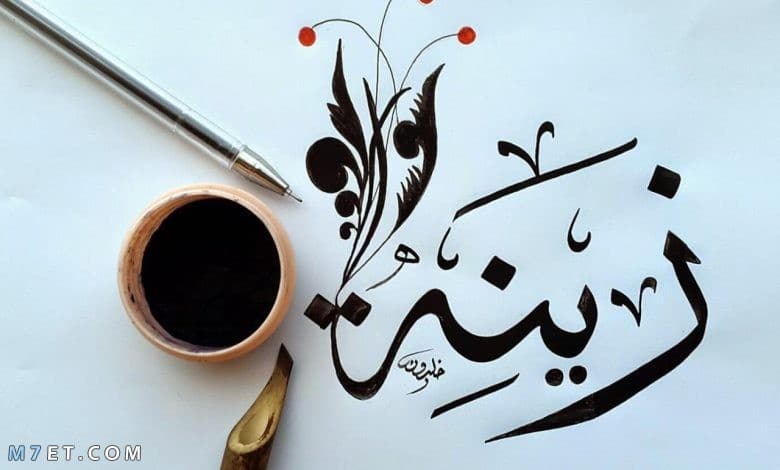 زينة
خلدون
M7ET.COM